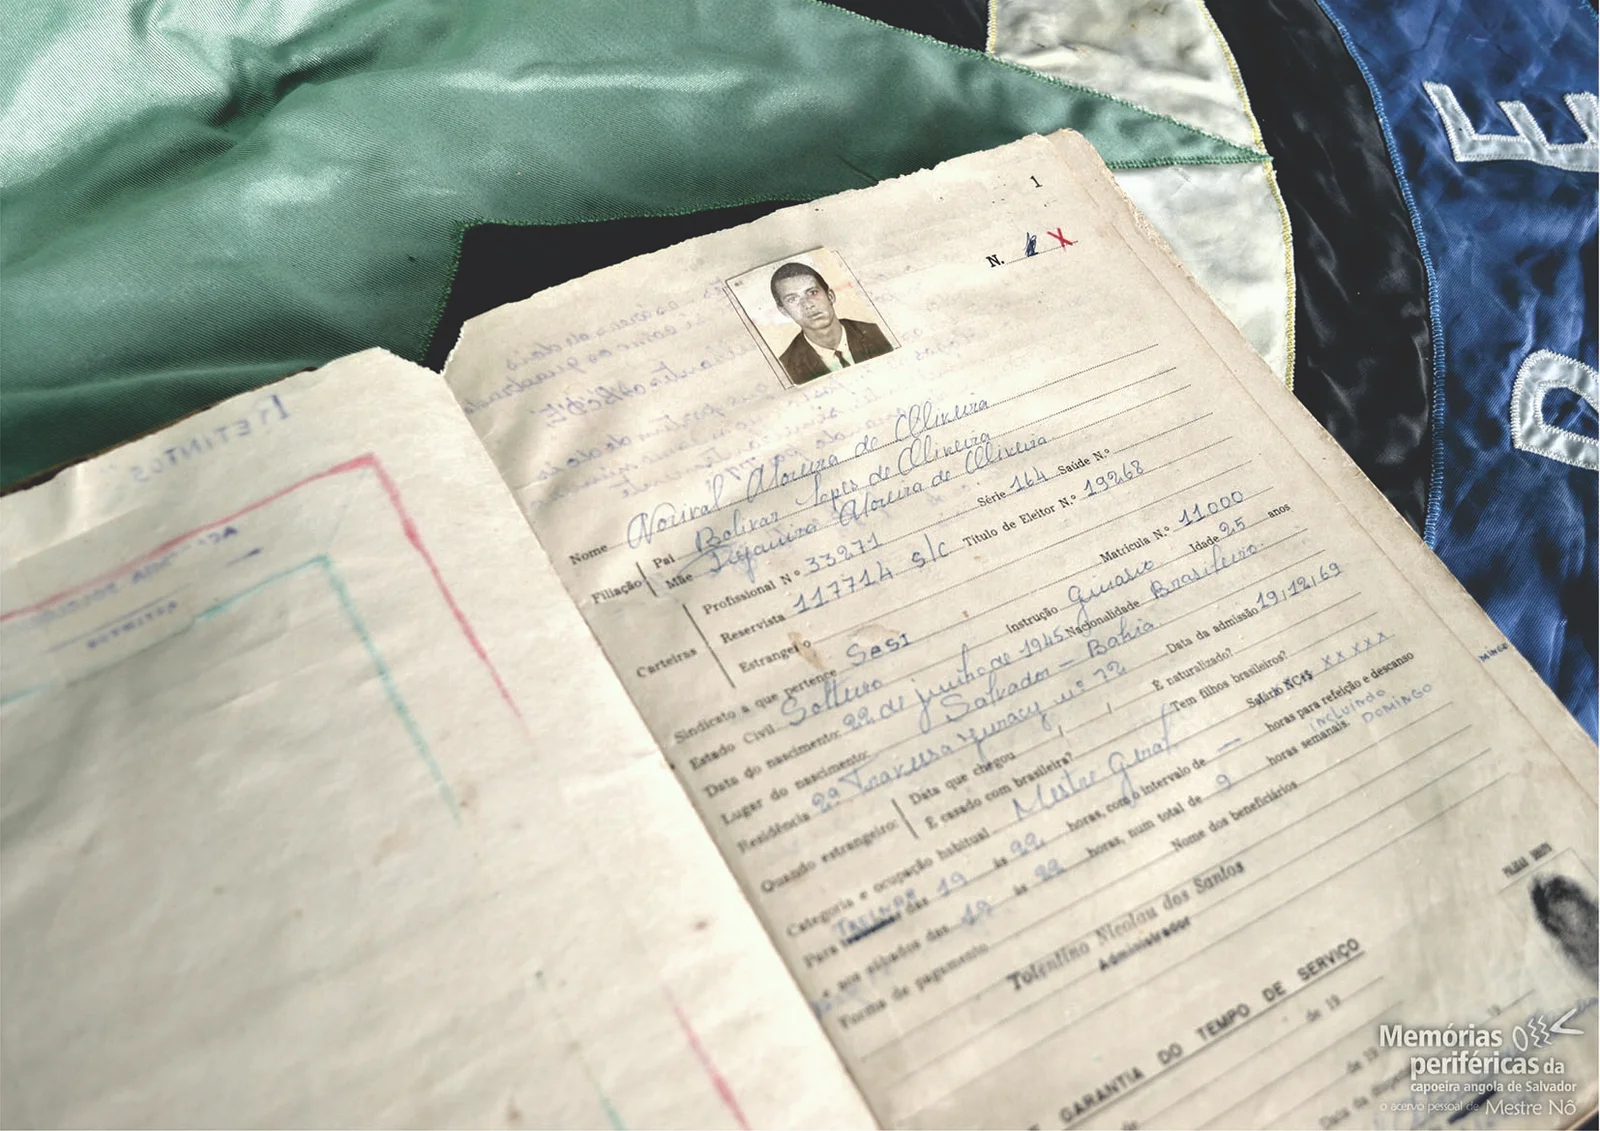 E
D
1
N. 1 X
Nome Norival Moreira de Oliveira
Filiação Pai Bolivar Lopes de Oliveira
Mãe Dejanira Moreira de Oliveira
Carteiras
Profissional N.º 33271 Série 164 Saúde N.º
Reservista 117714 S/C Título de Eleitor N.º 19268
Estrangeiro
Sindicato a que pertence SESI Matrícula N.º 11000
Estado Civil Solteiro Instrução Ginasio Idade 25 anos
Data do nascimento: 22 de junho de 1945 Nacionalidade Brasileiro
Lugar do nascimento: Salvador - Bahia
Residência 2ª Travessa nº 72 Data da admissão 19,12,69
Quando estrangeiro:
Data que chegou É naturalizado?
É casado com brasileira? Tem filhos brasileiros?
Categoria e ocupação habitual Mestre Geral Salário NCr$ xxxxx
Para TREINAR das 19 às 22 horas, com o intervalo de — horas para refeição e descanso
INCLUINDO DOMINGO
e aos sábados das 19 às 22 horas, num total de 9 horas semanais.
Forma de pagamento Nome dos beneficiários
Tolentino Nicolau dos Santos
Administrador
GARANTIA DO TEMPO DE SERVIÇO
de 19
Memórias
periféricas da
capoeira angola de Salvador
o acervo pessoal de Mestre Nô